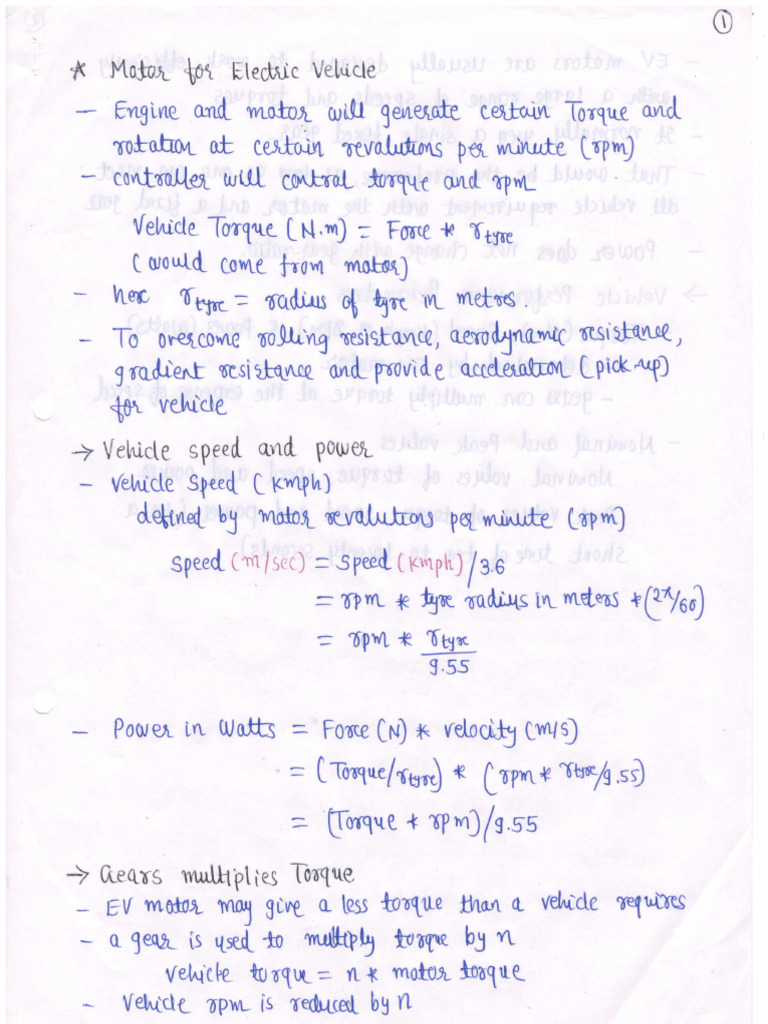 ①
* Motor for Electric Vehicle
- Engine and motor will generate certain Torque and
rotation at certain revolutions per minute (rpm)
- controller will control torque and rpm.
Vehicle Torque (N.m) = Force * r_tyre
(would come from motor)
- here r_tyre = radius of tyre in metres.
- To overcome rolling resistance, aerodynamic resistance,
gradient resistance and provide acceleration (pick-up)
for vehicle
→ Vehicle speed and power
- Vehicle Speed (kmph)
defined by motor revolutions per minute (rpm)
speed (m/sec) = speed (kmph)/3.6
= rpm * tyre radius in meters * (2π/60)
= rpm * r_tyre/9.55
- Power in Watts = Force (N) * velocity (m/s)
= (Torque/r_tyre) * (rpm * r_tyre/9.55)
= (Torque * rpm)/9.55
→ Gears multiplies Torque
- EV motor may give a less torque than a vehicle requires
- a gear is used to multiply torque by n
vehicle torque = n * motor torque
- Vehicle rpm is reduced by n